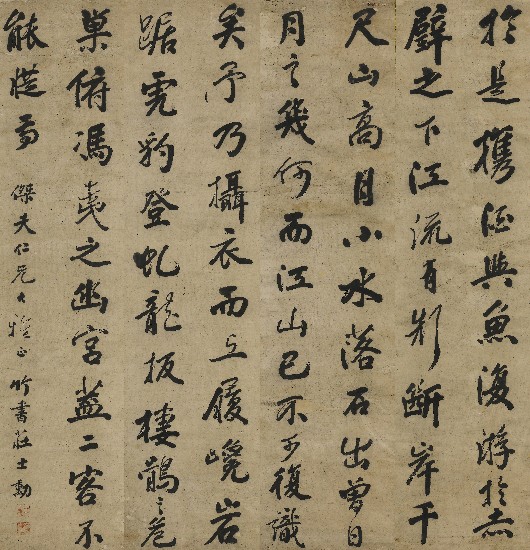 於是攜酒與魚復游於赤
壁之下江流有聲斷岸千
尺山高月小水落石出曾日
月之幾何而江山已不可復識
矣予乃攝衣而上履巉岩
踞虎豹登虬龍扳棲鶻之危
巢俯馮夷之幽宮蓋二客不
能從焉 傑夫仁兄大人雅正 竹書莊士勳